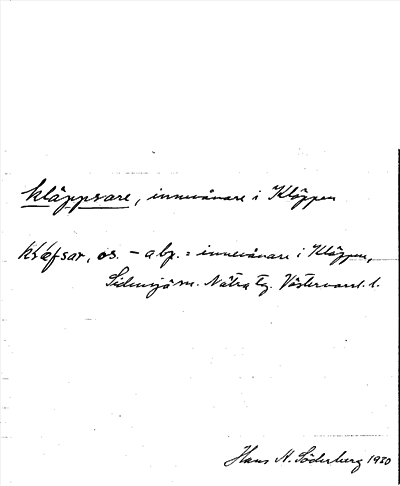 kläppsare, innevånare i Kläppen
kĺæfsar, os. – abp. = innevånare i Kläppen,
Sidensjö sn. Nätra tg. Västernorrl. l.
Hans A. Söderberg 1930